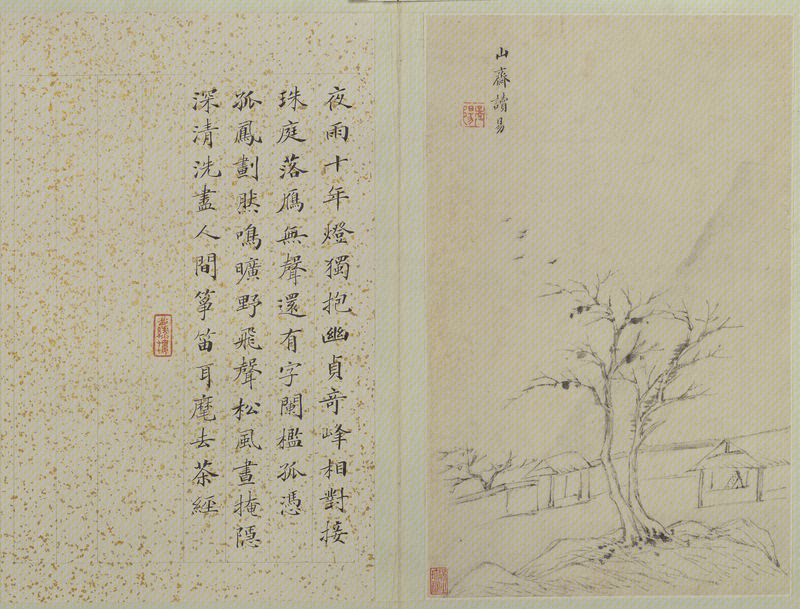 山齋讀易
夜雨十年燈獨抱幽貞奇峰相對接
珠庭落雁無聲還有字闌檻孤憑
孤鳳劃然鳴曠野飛聲松風晝掩隱
深清洗盡人間箏笛耳麾去茶經